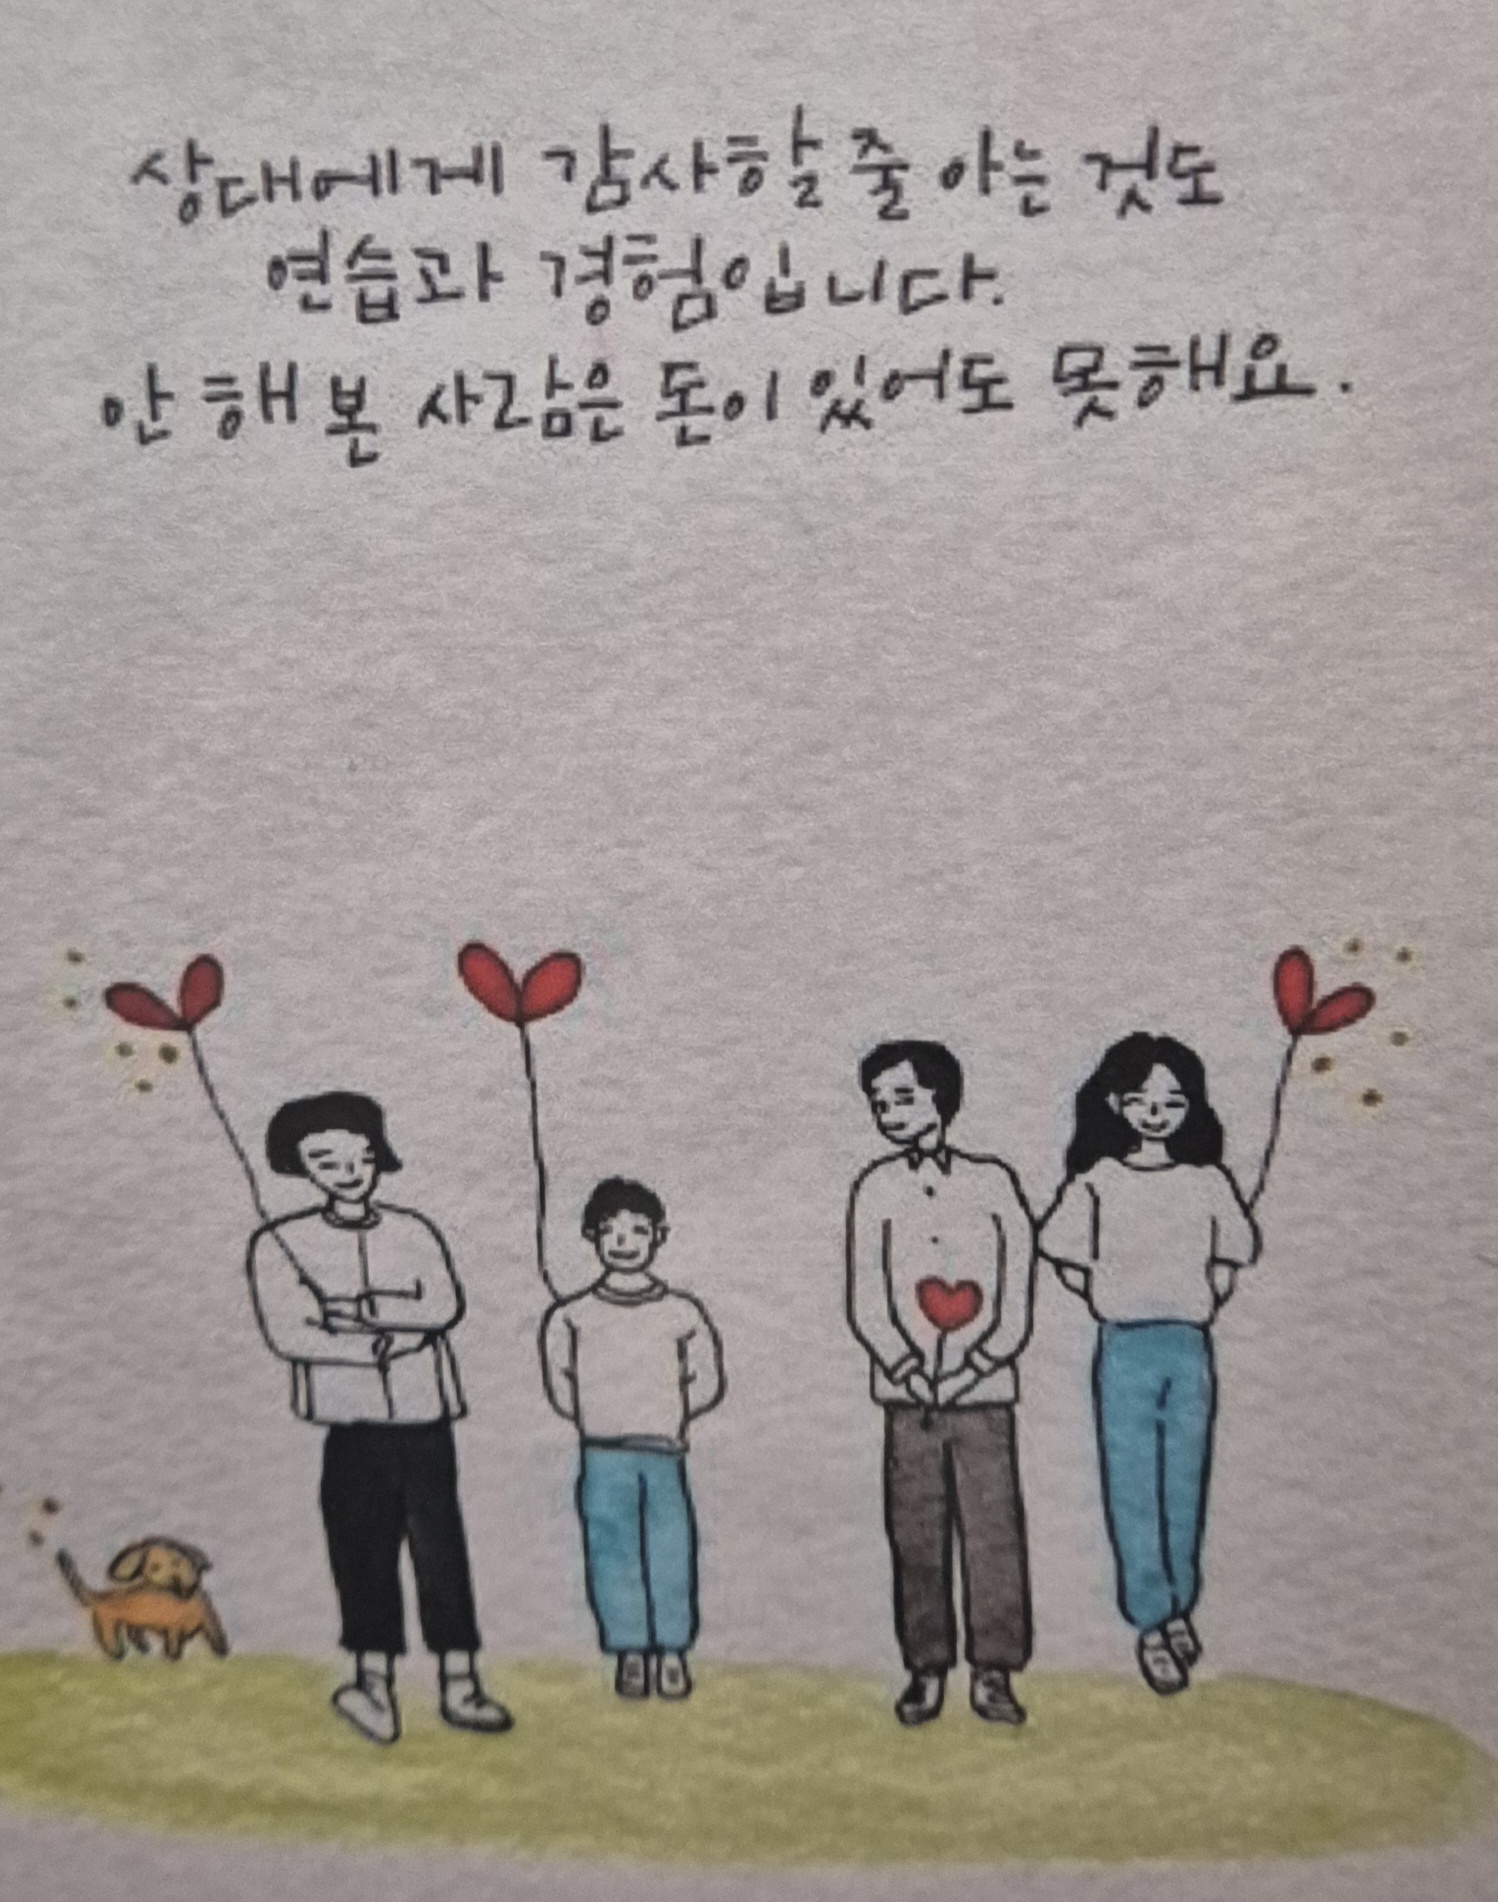 상대에게 감사할 줄 아는 것도
연습과 경험입니다.
안 해 본 사람은 돈이 있어도 못해요.